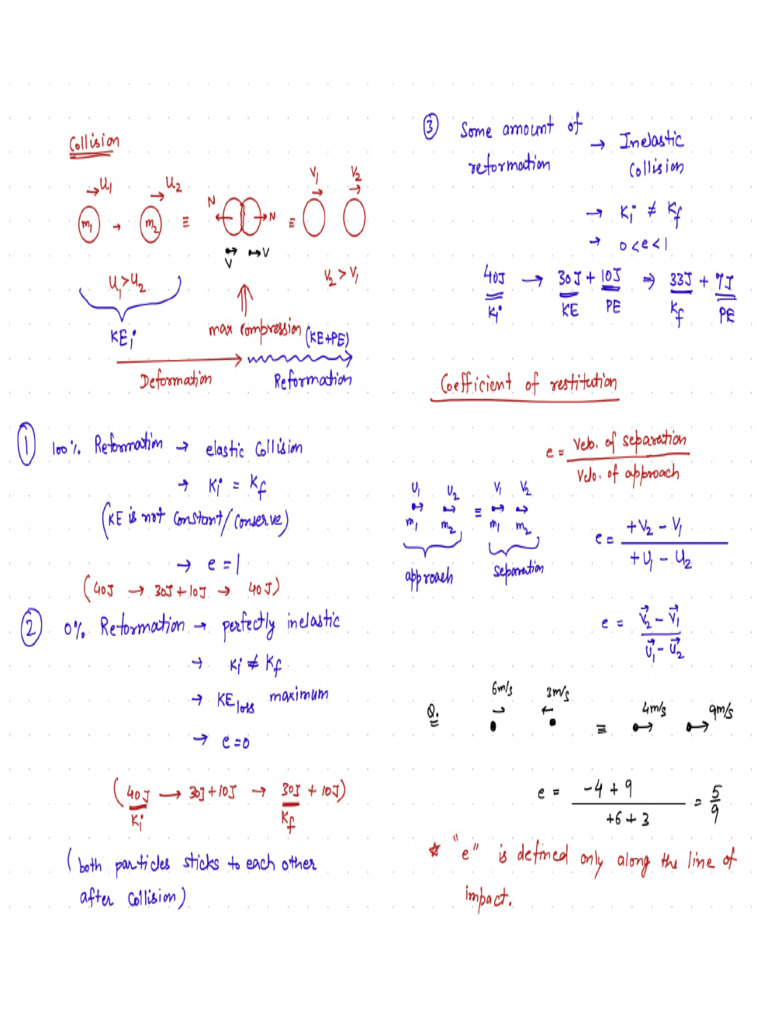 Collision
→U1 →U2
m1 → m2 ≡ N ← → N ≡ V1 V2
V V
U1 > U2
V2 > V1
KEi
max compression (KE+PE)
Deformation Reformation
① 100% Reformation → elastic Collision
→ Ki = Kf
(KE is not Constant/Conserve)
→ e = 1
(40J → 30J + 10J → 40J)
② 0% Reformation → perfectly inelastic
→ Ki ≠ Kf
→ KEloss maximum
→ e = 0
(40J → 30J + 10J → 30J + 10J)
Ki Kf
(both particles sticks to each other
after Collision)
③ Some amount of
reformation → Inelastic
Collision
→ Ki ≠ Kf
→ 0 < e < 1
40J → 30J + 10J ⇒ 33J + 7J
Ki KE PE Kf PE
Coefficient of restitution
e = Velo. of separation
Velo. of approach
U1 U2 ≡ V1 V2
m1 m2 m1 m2
approach separation
e = +V2 - V1
+U1 - U2
e = V⃗2 - V⃗1
U⃗1 - U⃗2
Q. 6m/s 3m/s ≡ 4m/s 9m/s
e = -4 + 9 = 5
+6 + 3 9
* "e" is defined only along the line of
impact.